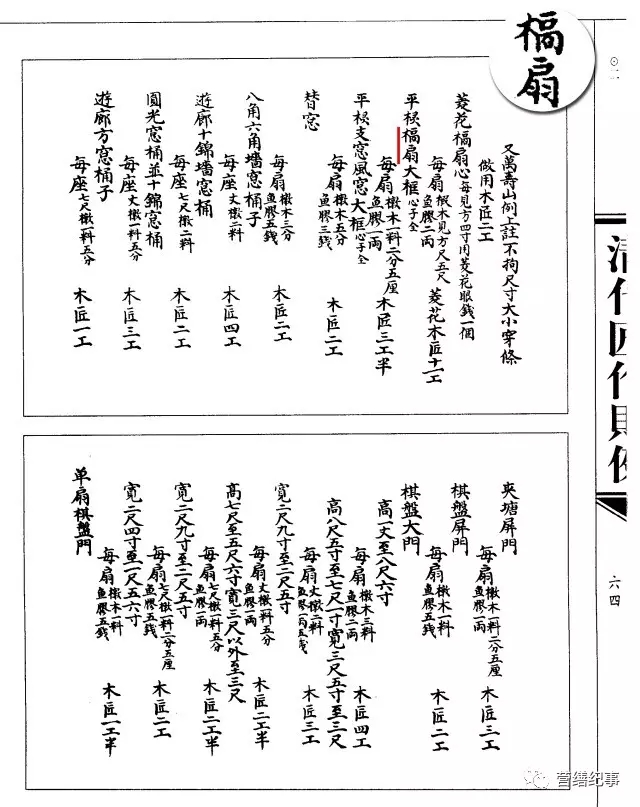 槅扇
又萬壽山例上註不拘尺寸大小穿條
做用木匠二工
菱花槅扇心每見方四寸用菱花眼錢一個
每扇椴木見方尺五尺魚膠二兩 菱花木匠十一工
平棂槅扇大框心子全
每扇檄木一料二分五厘魚膠一兩 木匠三工半
平棂支窓風窓大框心子全
每扇檄木五分魚膠三錢 木匠二工
替窓
每扇檄木三分魚膠五錢 木匠二工
八角六角墻窓桶子
每座丈檄二料 木匠四工
遊廊十錦墻窓桶
每座七尺檄二料 木匠二工
圓光窓桶並十錦窓桶
每座丈檄一料五分 木匠三工
遊廊方窓桶子
每座七尺檄一料五分 木匠一工
夾塘屏門
每扇檄木一料二分五厘魚膠一兩 木匠三工
棋盤屏門
每扇檄木一料魚膠五錢 木匠二工
棋盤大門
高一丈至八尺六寸
每扇檄木三料魚膠二兩 木匠四工
高八尺五寸至七尺一寸寬三尺五寸至三尺
每扇丈檄二料魚膠一兩五錢 木匠三工
寬二尺九寸至二尺五寸
每扇丈檄一料五分魚膠一兩 木匠二工半
高七尺至五尺六寸寬三尺以外至三尺
每扇七尺檄一料五分魚膠一兩 木匠二工半
寬二尺九寸至二尺五寸
每扇七尺檄一料二分五厘魚膠五錢 木匠二工
寬二尺四寸至一尺五六寸
每扇檄木一料魚膠五錢 木匠一工半
单扇棋盤門
⊙二
清代匠作則例
六四
营缮纪事